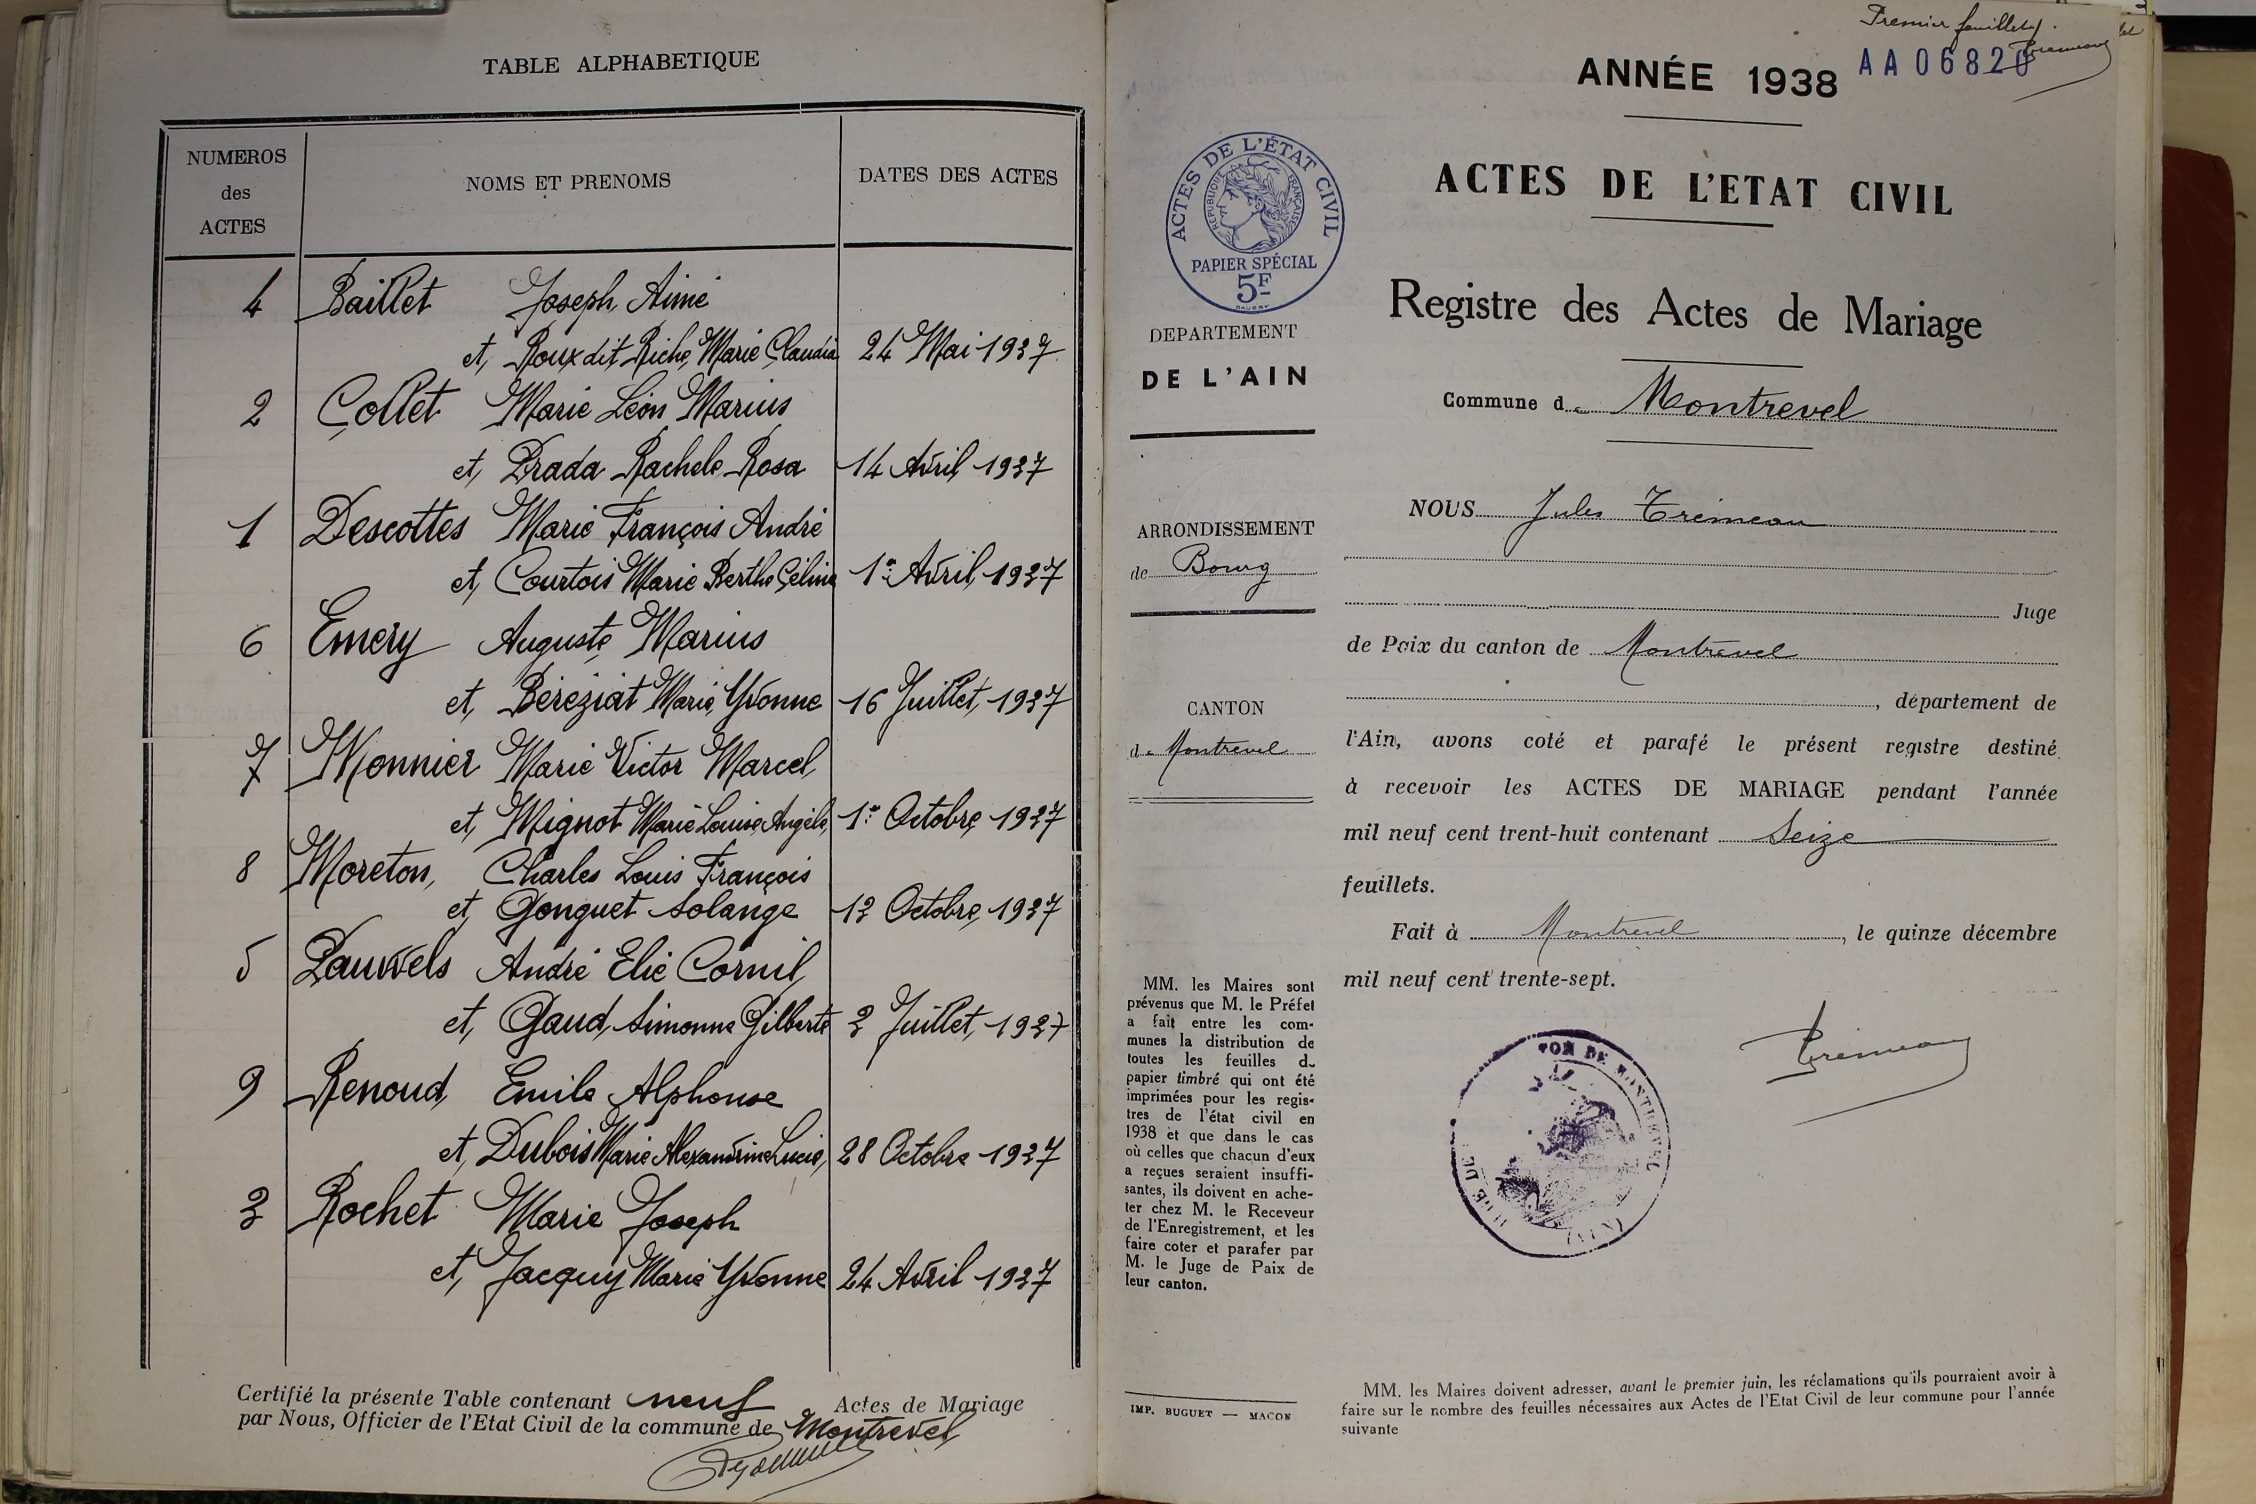 TABLE ALPHABETIQUE
NUMEROS des ACTES
NOMS ET PRENOMS
DATES DES ACTES
4 Baillet Joseph Aimé
et Roux dit Riche Marie Claudia 24 Mai 1937
2 Collet Marie Léon Marius
et Prada Rachele Rosa 14 Avril 1937
1 Descottes Marie François André
et Courtois Marie Berthe Céline 1er Avril 1937
6 Emery Auguste Marius
et Béréziat Marie Yvonne 16 Juillet 1937
7 Monnier Marie Victor Marcel
et Mignot Marie Louise Angèle 1er Octobre 1937
8 Moreton Charles Louis François
et Gonguet Solange 13 Octobre 1937
5 Pauwels André Elie Cornil
et Gaud Simonne Gilberte 3 Juillet 1937
9 Renoud Emile Alphonse
et Dubois Marie Alexandrine Lucie 28 Octobre 1937
3 Rochet Marie Joseph
et Jacquy Marie Yvonne 24 Avril 1937
Certifié la présente Table contenant neuf Actes de Mariage
par Nous, Officier de l'Etat Civil de la commune de Montrevel
Premier feuillet
AA06820
ANNÉE 1938
ACTES DE L'ÉTAT CIVIL
RÉPUBLIQUE FRANÇAISE
PAPIER SPÉCIAL
5F
ACTES DE L'ETAT CIVIL
Registre des Actes de Mariage
Commune de Montrevel
DEPARTEMENT
DE L'AIN
ARRONDISSEMENT
de Bourg
CANTON
de Montrevel
NOUS Jules Trémeau
Juge
de Paix du canton de Montrevel
, département de
l'Ain, avons coté et parafé le présent registre destiné
à recevoir les ACTES DE MARIAGE pendant l'année
mil neuf cent trent-huit contenant Seize
feuillets.
Fait à Montrevel, le quinze décembre
mil neuf cent trente-sept.
Trémeau
TON DE MONTREVEL
(AIN)
MM. les Maires sont
prévenus que M. le Préfet
a fait entre les com-
munes la distribution de
toutes les feuilles de
papier timbré qui ont été
imprimées pour les regis-
tres de l'état civil en
1938 et que dans le cas
où celles que chacun d'eux
a reçues seraient insuffi-
santes, ils doivent en ache-
ter chez M. le Receveur
de l'Enregistrement, et les
faire coter et parafer par
M. le Juge de Paix de
leur canton.
IMP. BUGUET — MACON
MM. les Maires doivent adresser, avant le premier juin, les réclamations qu'ils pourraient avoir à
faire sur le nombre des feuilles nécessaires aux Actes de l'Etat Civil de leur commune pour l'année
suivante